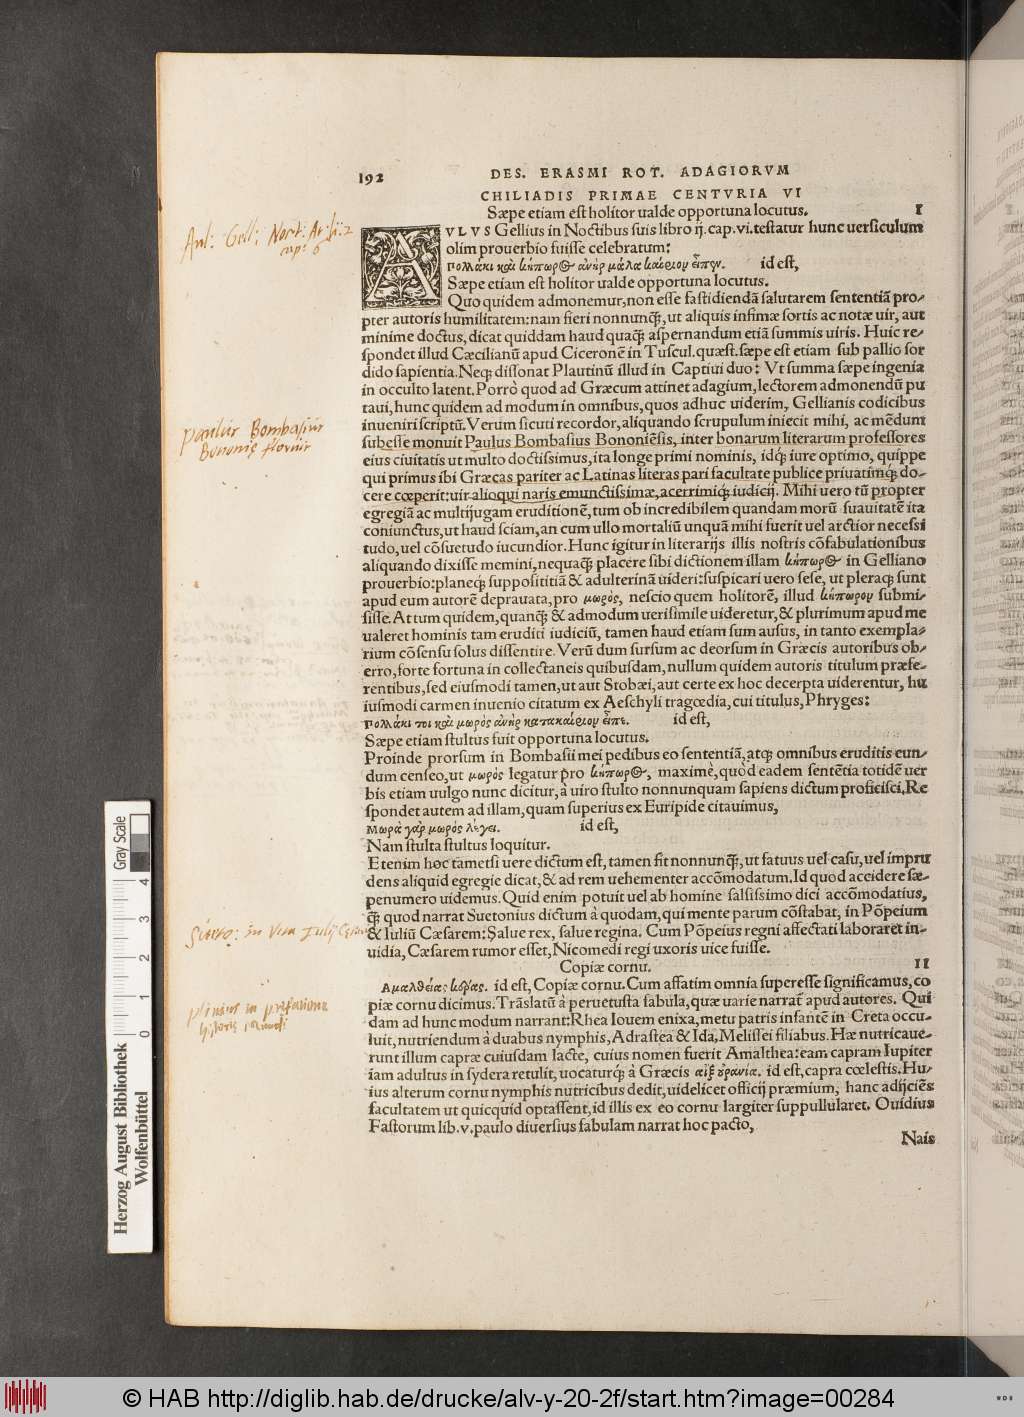 192
DES. ERASMI ROT. ADAGIORVM
CHILIADIS PRIMAE CENTVRIA VI
Sæpe etiam est holitor ualde opportuna locutus. I
AVLVS Gellius in Noctibus suis libro ij. cap. vi. testatur hunc uersiculum
olim prouerbio fuisse celebratum:
Πολλάκι καὶ κηπωρὸς ἀνὴρ μάλα καίριον εἶπεν. id est,
Sæpe etiam est holitor ualde opportuna locutus.
Quo quidem admonemur, non esse fastidiendā salutarem sententiā pro-
pter autoris humilitatem: nam fieri nonnunq̄, ut aliquis infimæ sortis ac notæ uir, aut
minime doctus, dicat quiddam haud quaq̄ aspernandum etiā summis uiris. Huic re-
spondet illud Cæcilianū apud Ciceronē in Tuscul. quæst. sæpe est etiam sub pallio sor
dido sapientia. Neq; dissonat Plautinū illud in Captiui duo: Vt summa sæpe ingenia
in occulto latent. Porrò quod ad Græcum attinet adagium, lectorem admonendū pu
taui, hunc quidem ad modum in omnibus, quos adhuc uiderim, Gellianis codicibus
inueniri scriptū. Verum sicuti recordor, aliquando scrupulum iniecit mihi, ac mēdum
subesse monuit Paulus Bombasius Bononiēsis, inter bonarum literarum professores
eius ciuitatis ut multo doctissimus, ita longe primi nominis, idq; iure optimo, quippe
qui primus ibi Græcas pariter ac Latinas literas pari facultate publice priuatimq; do-
cere cœperit: uir alioqui naris emunctissimæ, acerrimiq; iudicij. Mihi uero tū propter
egregiā ac multijugam eruditionē, tum ob incredibilem quandam morū suauitatē ita
coniunctus, ut haud sciam, an cum ullo mortaliū unquā mihi fuerit uel arctior necessi
tudo, uel cōsuetudo iucundior. Hunc igitur in literarijs illis nostris cōfabulationibus
aliquando dixisse memini, nequaq̄ placere sibi dictionem illam κηπωρὸς in Gelliano
prouerbio: planeq; supposititiā & adulterinā uideri: suspicari uero sese, ut pleraq; sunt
apud eum autorē deprauata, pro μωρὸς, nescio quem holitorē, illud κήπωρον submi-
sisse. At tum quidem, quanq̄ & admodum uerisimile uideretur, & plurimum apud me
ualeret hominis tam eruditi iudiciū, tamen haud etiam sum ausus, in tanto exempla-
rium cōsensu solus dissentire. Verū dum sursum ac deorsum in Græcis autoribus ob-
erro, forte fortuna in collectaneis quibusdam, nullum quidem autoris titulum præfe-
rentibus, sed eiusmodi tamen, ut aut Stobæi, aut certe ex hoc decerpta uiderentur, hu
iusmodi carmen inuenio citatum ex Aeschyli tragœdia, cui titulus, Phryges:
Πολλάκι τοι καὶ μωρὸς ἀνὴρ κατακαίριον εἶπε. id est,
Sæpe etiam stultus fuit opportuna locutus.
Proinde prorsum in Bombasii mei pedibus eo sententiā, atq; omnibus eruditis eun-
dum censeo, ut μωρὸς legatur pro κηπωρὸς, maximè, quòd eadem sentētia totidē uer
bis etiam uulgo nunc dicitur, à uiro stulto nonnunquam sapiens dictum proficisci. Re
spondet autem ad illam, quam superius ex Euripide citauimus,
Μωρὰ γὰρ μωρὸς λέγει. id est,
Nam stulta stultus loquitur.
Etenim hoc tametsi uere dictum est, tamen fit nonnunq̄, ut fatuus uel casu, uel impru
dens aliquid egregie dicat, & ad rem uehementer accōmodatum. Id quod accidere sæ-
penumero uidemus. Quid enim potuit uel ab homine salsissimo dici accōmodatius,
q̄ quod narrat Suetonius dictum à quodam, qui mente parum cōstabat, in Pōpeium
& Iuliū Cæsarem: Salue rex, salue regina. Cum Pōpeius regni affectati laboraret in-
uidia, Cæsarem rumor esset, Nicomedi regi uxoris uice fuisse.
Copiæ cornu. II
Ἀμαλθείας κέρας. id est, Copiæ cornu. Cum affatim omnia superesse significamus, co
piæ cornu dicimus. Trāslatū à peruetusta fabula, quæ uarie narrať apud autores. Qui
dam ad hunc modum narrant: Rhea Iouem enixa, metu patris infantē in Creta occu-
luit, nutriendum à duabus nymphis, Adrastea & Ida, Melissei filiabus. Hæ nutricaue-
runt illum capræ cuiusdam lacte, cuius nomen fuerit Amalthea: eam capram Iupiter
iam adultus in sydera retulit, uocaturq; à Græcis αἲξ οὐρανία. id est, capra cœlestis. Hu-
ius alterum cornu nymphis nutricibus dedit, uidelicet officij præmium, hanc adijciēs
facultatem ut quicquid optassent, id illis ex eo cornu largiter suppullularet. Ouidius
Fastorum lib. v. paulo diuersius fabulam narrat hoc pacto,
Nais
Aul: Gell: Noct: At: li: 2
cap: 6
Paulus Bombasius
Bononię floruit
Sueto: in Vita Iulij Cęsar
Plinius in pręfatione
hystorię mundi
Gray Scale
4
3
2
1
0
Herzog August Bibliothek
Wolfenbüttel
© HAB http://diglib.hab.de/drucke/alv-y-20-2f/start.htm?image=00284